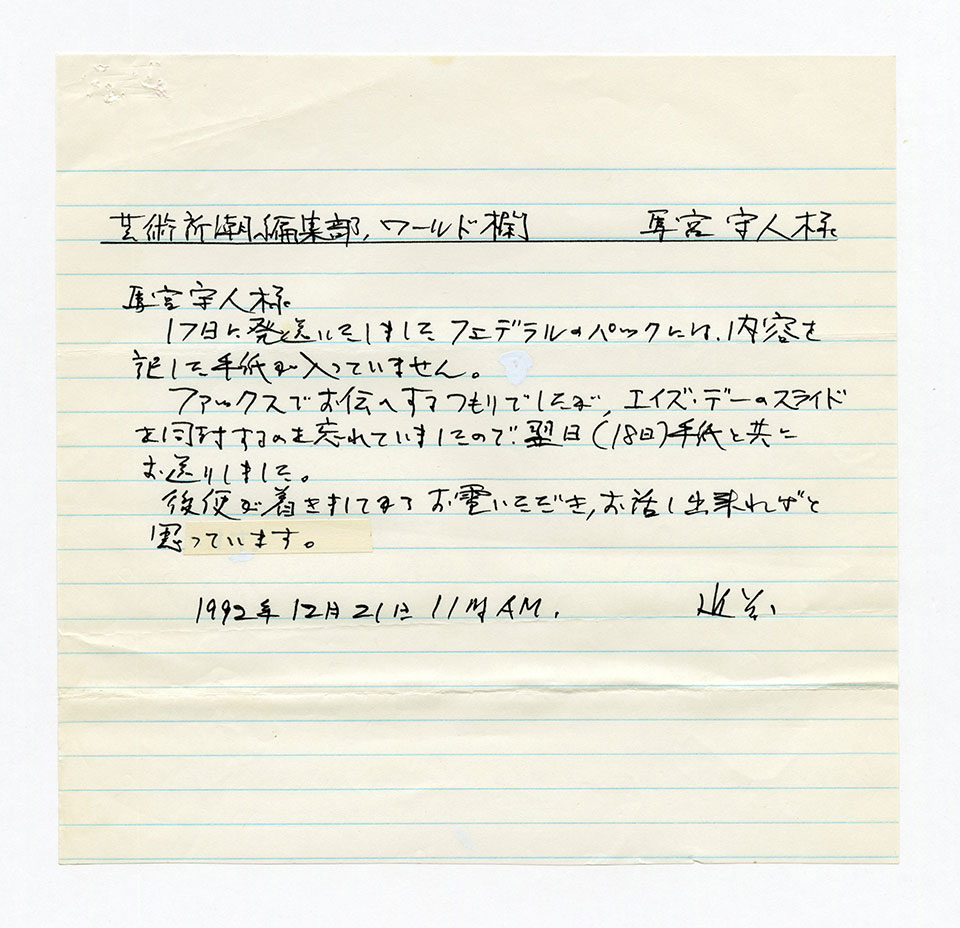 芸術新潮編集部, ワールド欄 馬宮守人様
馬宮守人様
17日に発送いたしましたフェデラルのパックには、内容を
記した手紙が入っていません。
ファックスでお伝へするつもりでしたが, エイズ・デーのスライド
を同封するのを忘れていましたので翌日(18日)手紙と共に
お送りしました。
後便が着きましてからお電いただき, お話し出来ればと
思っています。
1992年12月21日 11時AM.